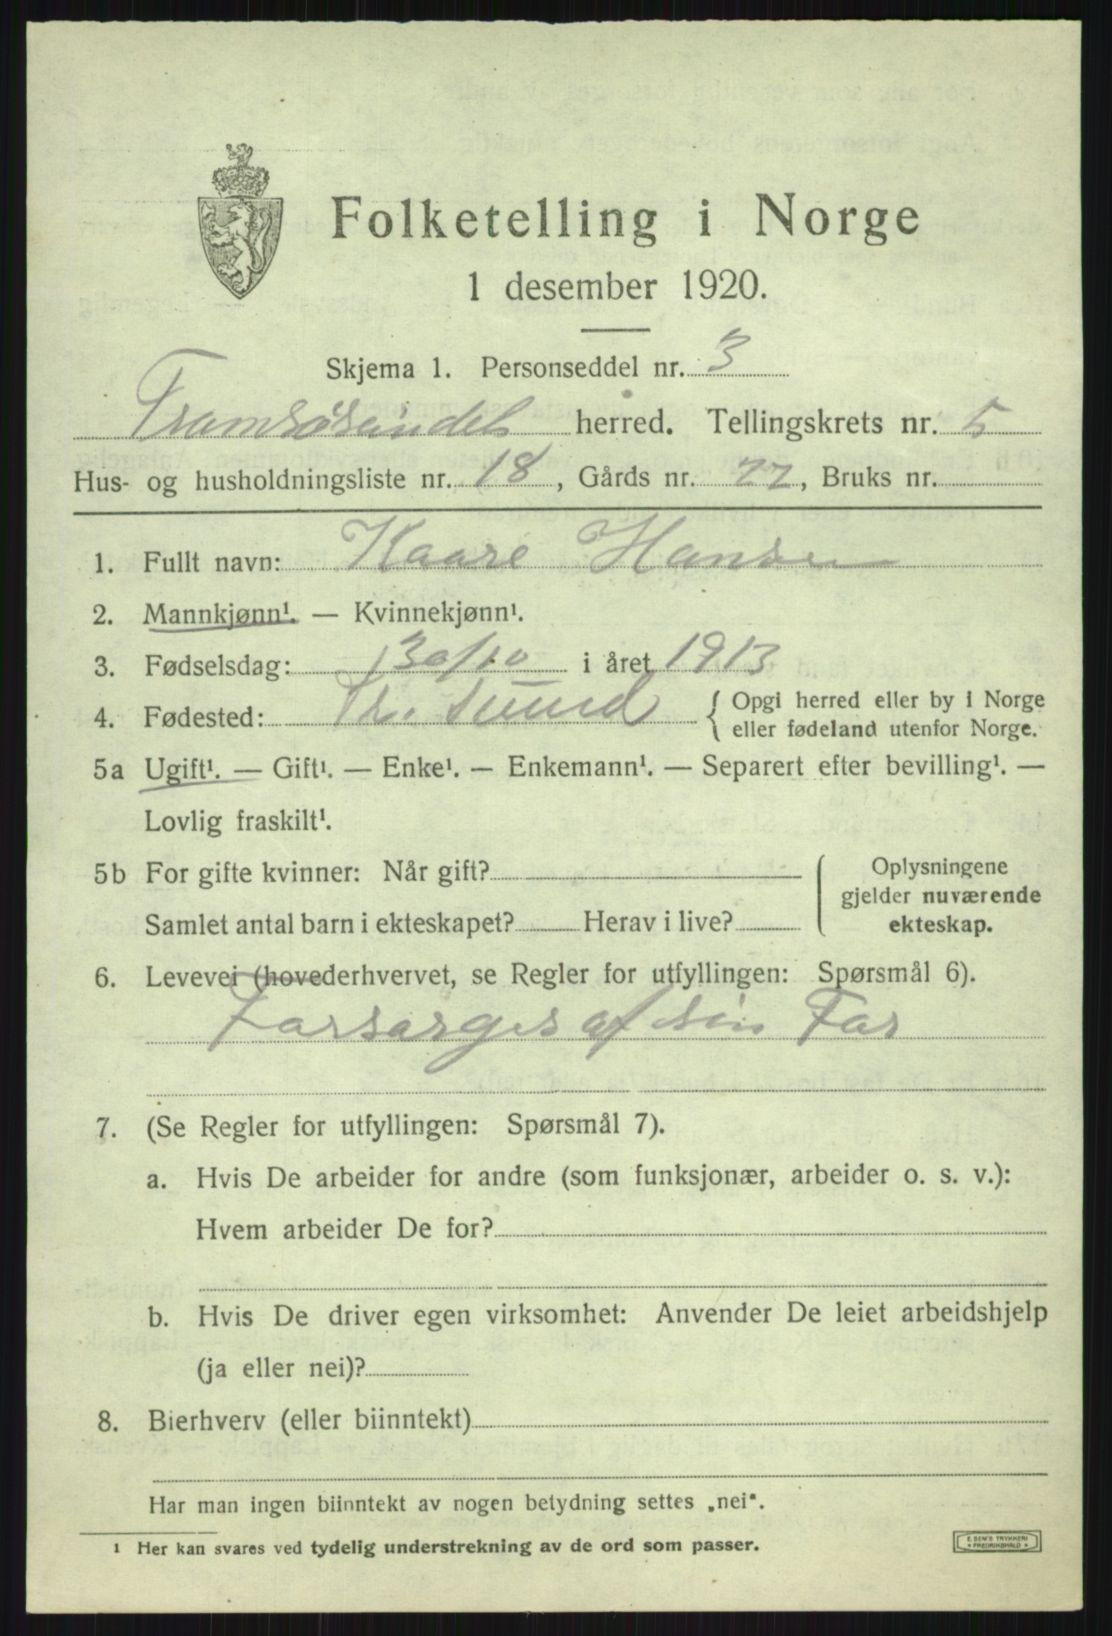 Folketelling i Norge
1 desember 1920.
Skjema 1. Personseddel nr. 3
Tromsøsundet herred. Tellingskrets nr. 5
Hus- og husholdningsliste nr. 18, Gårds nr. 22, Bruks nr.
1. Fullt navn: Kaare Hansen
2. Mannkjønn¹. — Kvinnekjønn¹.
3. Fødselsdag: 30/10 i året 1913
4. Fødested: Tr. sund { Opgi herred eller by i Norge
eller fødeland utenfor Norge.
5a Ugift¹. — Gift¹. — Enke¹. — Enkemann¹. — Separert efter bevilling¹. —
Lovlig fraskilt¹.
5b For gifte kvinner: Når gift? { Oplysningene
gjelder nuværende
Samlet antal barn i ekteskapet? Herav i live? ekteskap.
6. Levevei (hovederhvervet, se Regler for utfyllingen: Spørsmål 6).
Forsorges af sin Far
7. (Se Regler for utfyllingen: Spørsmål 7).
a. Hvis De arbeider for andre (som funksjonær, arbeider o. s. v.):
Hvem arbeider De for?
b. Hvis De driver egen virksomhet: Anvender De leiet arbeidshjelp
(ja eller nei)?
8. Bierhverv (eller biinntekt)
Har man ingen biinntekt av nogen betydning settes „nei“.
¹ Her kan svares ved tydelig understrekning av de ord som passer.
E. SEM'S TRYKKERI
* FREDRIKSHALD *